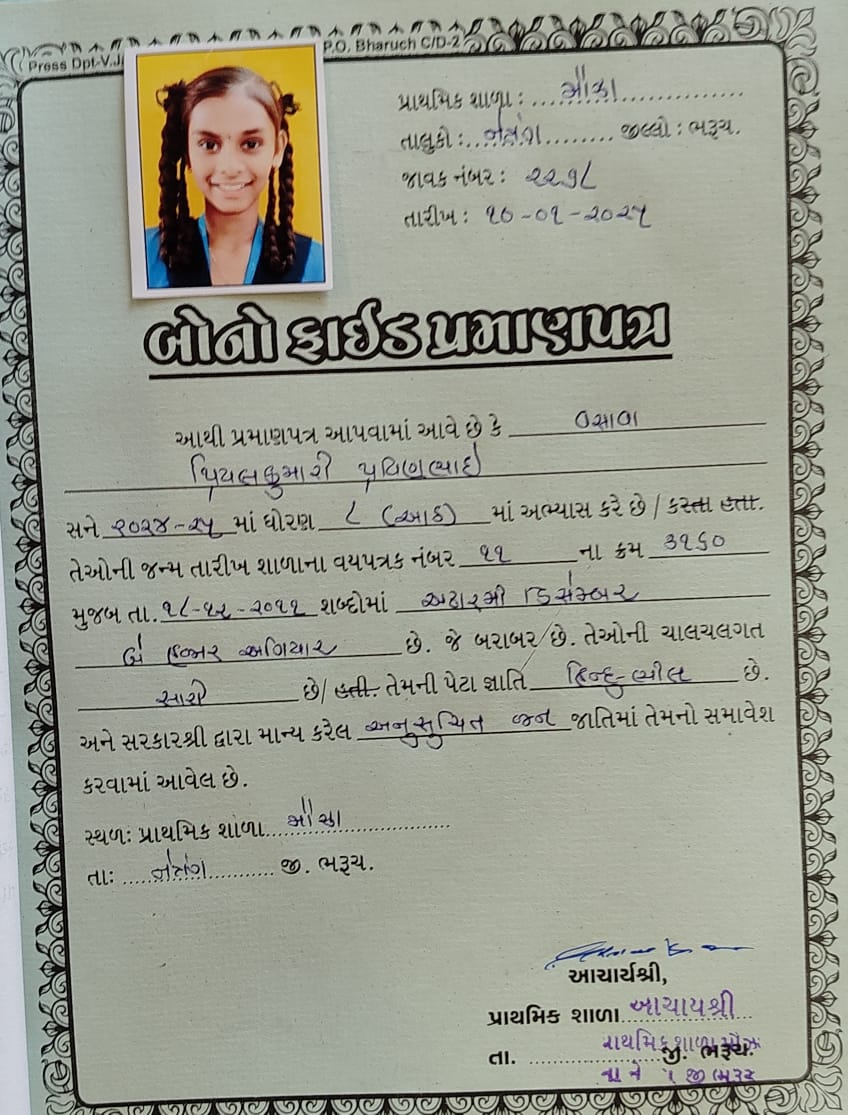 Press Dpt-V.J
P.O. Bharuch C/D-2
પ્રાથમિક શાળા : મૌઝા
તાલુકો : નેત્રંગ જીલ્લો : ભરૂચ.
જાવક નંબર : ૨૨૧૮
તારીખ : ૧૦-૦૧-૨૦૨૫
બોનો ફાઈડ પ્રમાણપત્ર
આથી પ્રમાણપત્ર આપવામાં આવે છે કે વસાવા
પ્રિયલકુમારી પ્રવિણભાઈ
સને ૨૦૨૪-૨૫ માં ધોરણ ૮ (આઠ) માં અભ્યાસ કરે છે / કરતા હતા.
તેઓની જન્મ તારીખ શાળાના વયપત્રક નંબર ૧૧ ના ક્રમ ૩૧૬૦
મુજબ તા. ૧૮-૧૨-૨૦૧૧ શબ્દોમાં અઢારમી ડિસેમ્બર
બે હજાર અગિયાર છે. જે બરાબર છે. તેઓની ચાલચલગત
સારી છે/ હતી. તેમની પેટા જ્ઞાતિ હિન્દુ-ભીલ છે.
અને સરકારશ્રી દ્વારા માન્ય કરેલ અનુસુચિત જન જાતિમાં તેમનો સમાવેશ
કરવામાં આવેલ છે.
સ્થળ: પ્રાથમિક શાળા મૌઝા
તાઃ નેત્રંગ જી. ભરૂચ.
આચાર્યશ્રી,
પ્રાથમિક શાળા આચાર્યશ્રી
પ્રાથમિક શાળા મૌઝા
તા. જી. ભરૂચ.
જી ભરૂચ